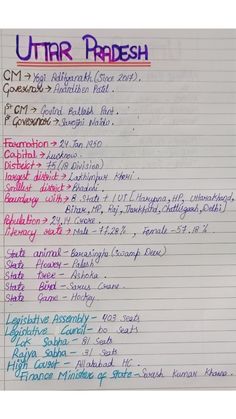 UTTAR PRADESH
CM → Yogi Adityanath (Since 2017).
Governor → Anandiben Patel.
1st CM → Govind Ballabh Pant.
1st Governor → Sarojni Naidu.
Formation → 24 Jan 1950
Capital → Lucknow.
District → 75 (18 Division)
largest district → Lakhimpur Kheri.
Smallest district → Bhadohi.
Boundary with → 8 State + 1 UT [Haryana, HP, Uttarakhand,
Bihar, MP, Raj, Jharkhand, Chattisgarh, Delhi]
Population → 24.14 Crore.
literacy rate → Male - 77.28%, Female - 57.18%
State animal - Barasingha (Swamp Deer)
State Flower - Palash
State tree - Ashoka.
State Bird - Sarus Crane.
State Game - Hockey.
Legislative Assembly - 403 seats
Legislative Council - 100 seats
Lok Sabha - 81 Seats
Rajya Sabha - 31 Seats
High Court - Allahabad HC.
Finance Minister of State - Suresh Kumar Khanna.